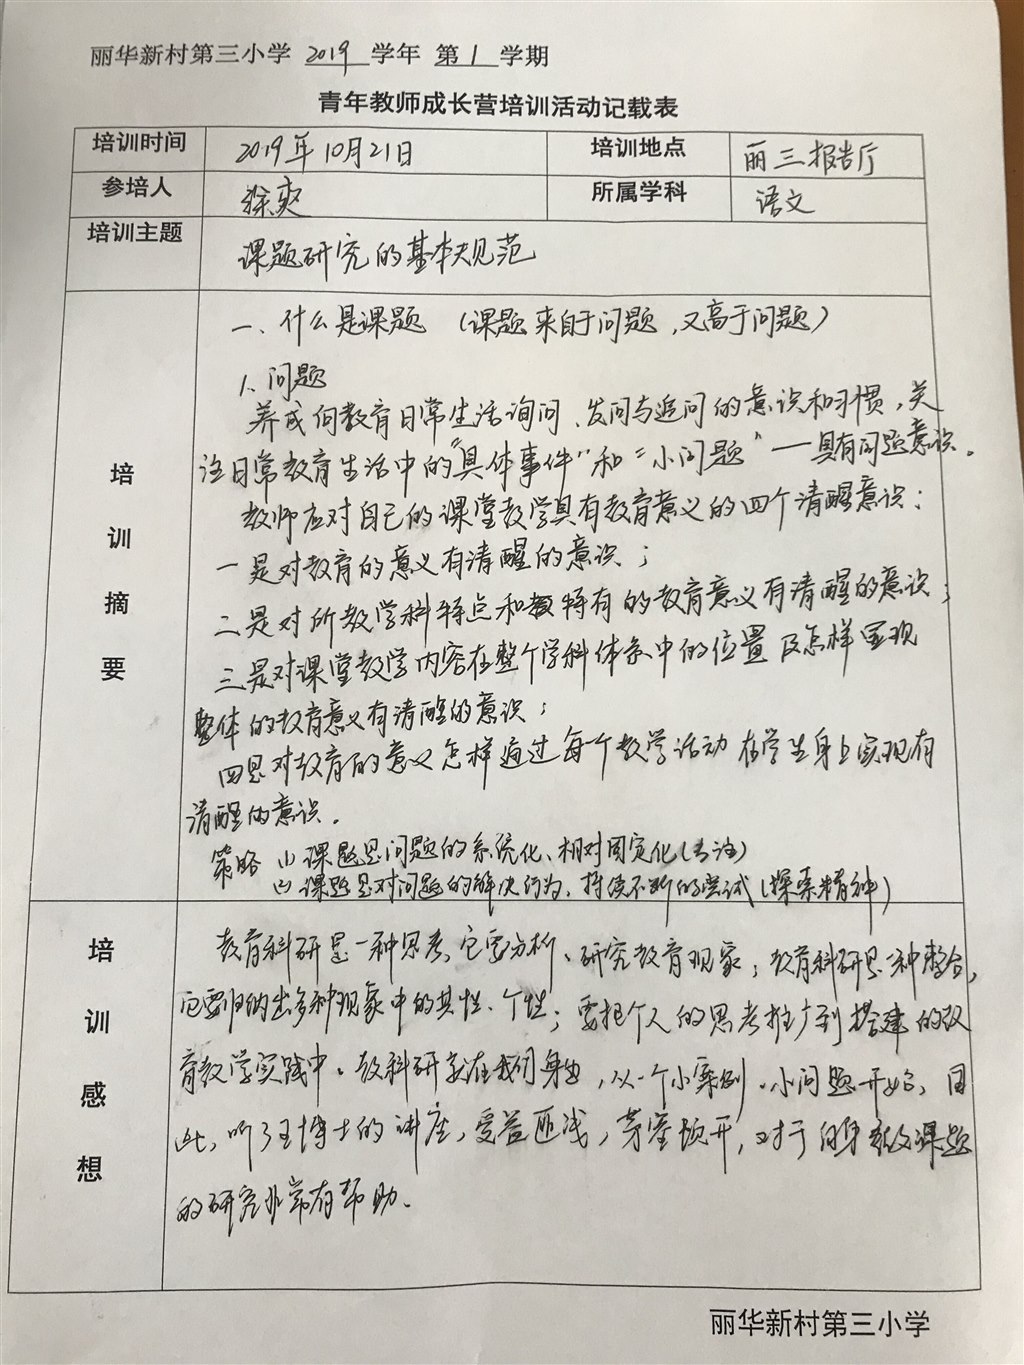 丽华新村第三小学 2019 学年 第 1 学期
青年教师成长营培训活动记载表
培训时间 2019年10月21日 培训地点 丽三报告厅
参培人 徐爽 所属学科 语文
培训主题 课题研究的基本规范
培训摘要
一、什么是课题 (课题来自于问题,又高于问题)
1、问题
养成向教育日常生活询问、发问与追问的意识和习惯,关
注日常教育生活中的“具体事件”和“小问题”—具有问题意识。
教师应对自己的课堂教学具有教育意义的四个清醒意识:
一是对教育的意义有清醒的意识;
二是对所教学科特点和特有的教育意义有清醒的意识;
三是对课堂教学内容在整个学科体系中的位置及怎样呈现
整体的教育意义有清醒的意识;
四是对教育的意义怎样通过每个教学活动在学生身上实现有
清醒的意识。
策略 (1) 课题是问题的系统化、相对固定化(专注)
(2) 课题是对问题的解决行为、持续不断的尝试(探索精神)
培训感想
教育科研是一种思考,它要分析、研究教育现象;教育科研是一种整合,
它要归纳出多种现象中的共性、个性;要把个人的思考推广到搭建的教
育教学实践中。教科研就在我们身边,从一个小案例、小问题开始,因
此,听了王博士的讲座,受益匪浅,茅塞顿开,对于自身课题
的研究非常有帮助。
丽华新村第三小学